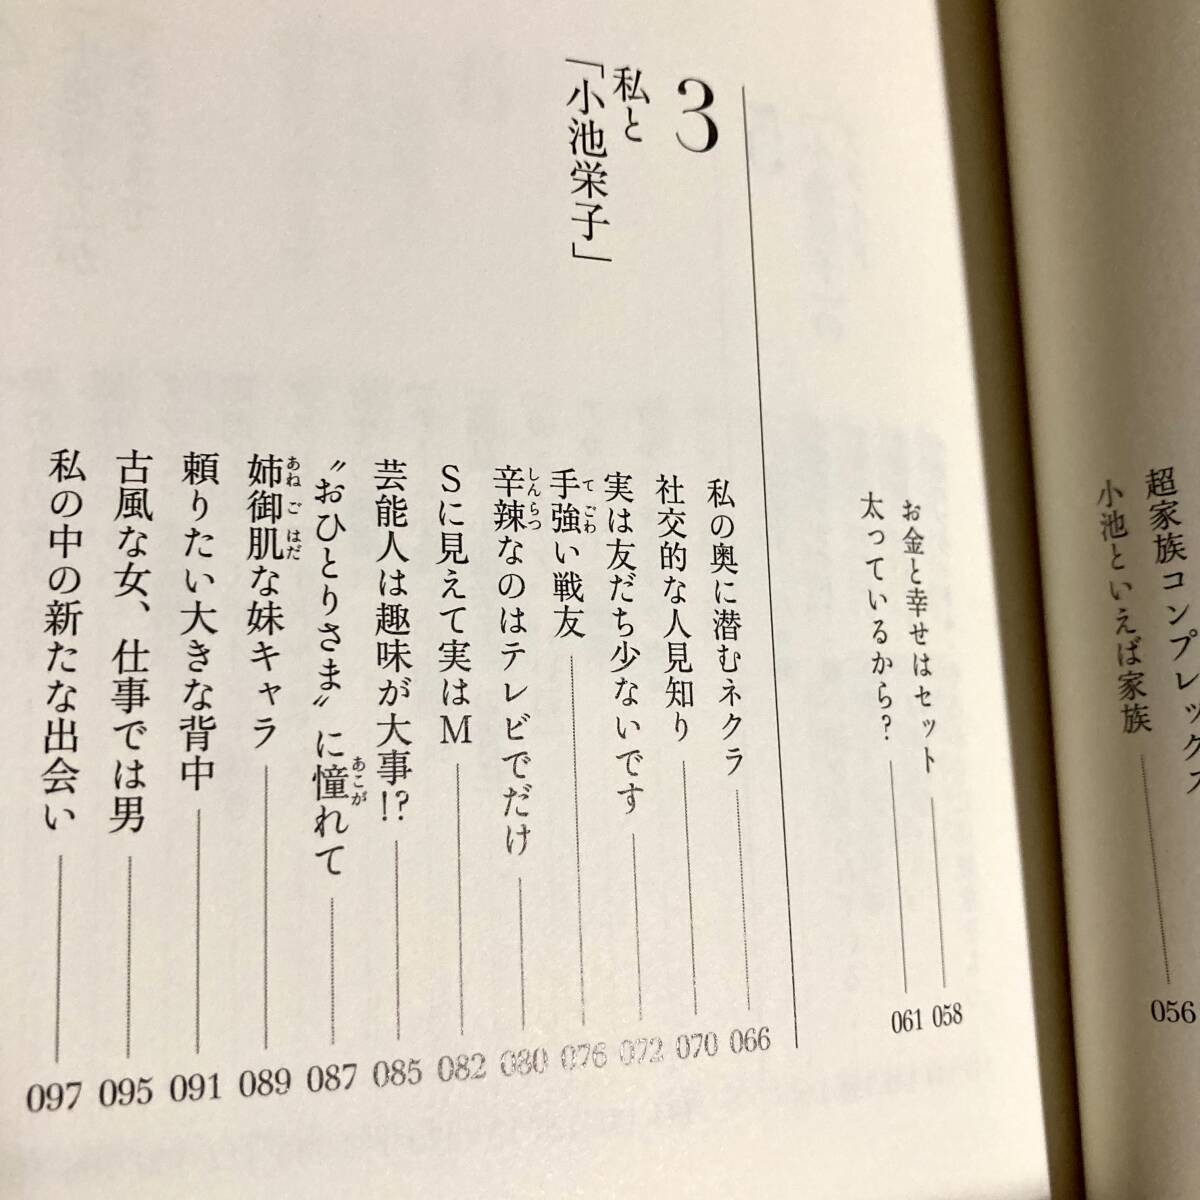 小池といえば家族
超家族コンプレックス 056
お金と幸せはセット 058
太っているから? 061
3
私と
「小池栄子」
私の奥に潜むネクラ 066
社交的な人見知り 070
実は友だち少ないです 072
手強い戦友 076
てごわ
辛辣なのはテレビでだけ 080
しんらつ
Sに見えて実はM 082
芸能人は趣味が大事!? 085
〝おひとりさま〟に憧れて 087
あこが
姉御肌な妹キャラ 089
あねごはだ
頼りたい大きな背中 091
古風な女、仕事では男 095
私の中の新たな出会い 097